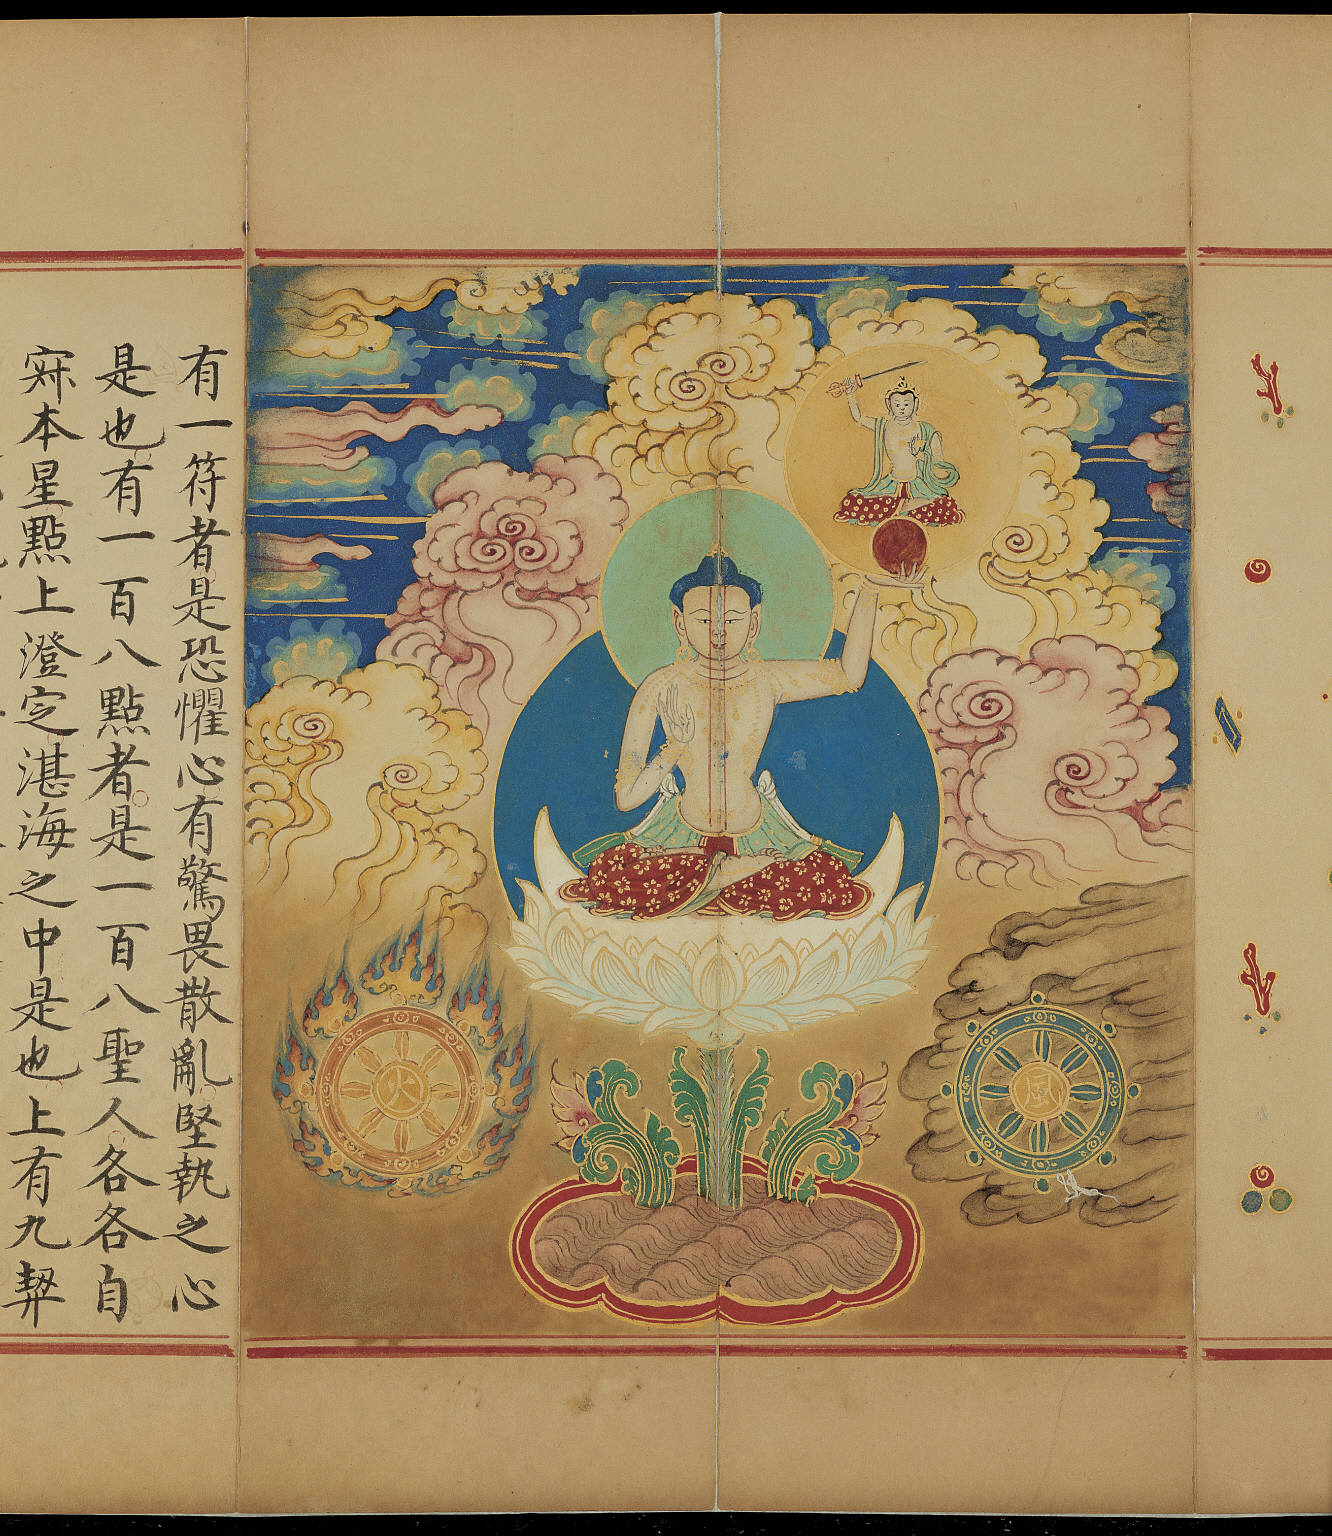 有一符者是恐懼心有驚畏散亂堅執之心
是也有一百八點者是一百八聖人各各自
寂本星點上澄定湛海之中是也上有九契
火
風